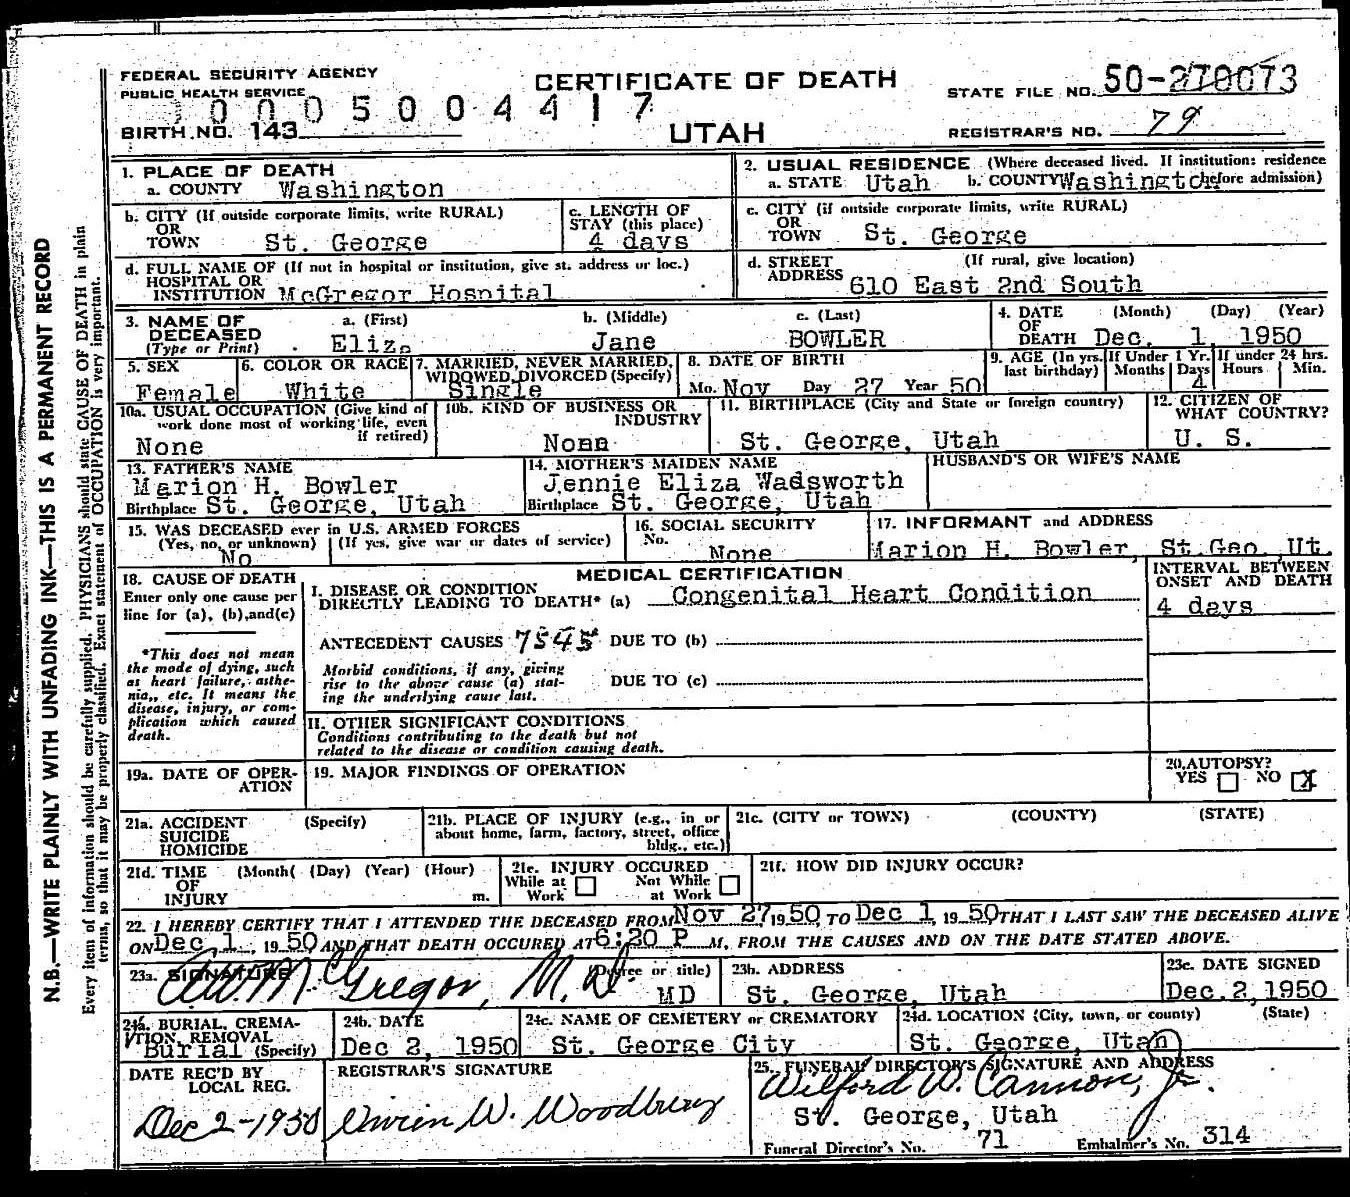 FEDERAL SECURITY AGENCY
PUBLIC HEALTH SERVICE
CERTIFICATE OF DEATH
STATE FILE NO. 50-270073
0005004417
BIRTH NO. 143
UTAH
REGISTRAR'S NO. 79
1. PLACE OF DEATH
a. COUNTY Washington
2. USUAL RESIDENCE (Where deceased lived. If institution: residence
a. STATE Utah b. COUNTY Washington before admission)
b. CITY (If outside corporate limits, write RURAL)
OR
TOWN St. George
c. LENGTH OF
STAY (this place)
4 days
c. CITY (if outside corporate limits, write RURAL)
OR
TOWN St. George
d. FULL NAME OF (If not in hospital or institution, give st. address or loc.)
HOSPITAL OR
INSTITUTION McGregor Hospital
d. STREET (If rural, give location)
ADDRESS 610 East 2nd South
3. NAME OF DECEASED (Type or Print)
a. (First) Eliza
b. (Middle) Jane
c. (Last) BOWLER
4. DATE OF DEATH (Month) (Day) (Year)
Dec. 1, 1950
5. SEX
Female
6. COLOR OR RACE
White
7. MARRIED, NEVER MARRIED,
WIDOWED, DIVORCED (Specify)
Single
8. DATE OF BIRTH
Mo. Nov Day 27 Year 50
9. AGE (In yrs. last birthday)
If Under 1 Yr. Months Days
4
If under 24 hrs. Hours Min.
10a. USUAL OCCUPATION (Give kind of
work done most of working life, even
if retired)
None
10b. KIND OF BUSINESS OR
INDUSTRY
None
11. BIRTHPLACE (City and State or foreign country)
St. George, Utah
12. CITIZEN OF
WHAT COUNTRY?
U. S.
13. FATHER'S NAME
Marion H. Bowler
Birthplace St. George, Utah
14. MOTHER'S MAIDEN NAME
Jennie Eliza Wadsworth
Birthplace St. George, Utah
HUSBAND'S OR WIFE'S NAME
15. WAS DECEASED ever in U.S. ARMED FORCES
(Yes, no, or unknown) (If yes, give war or dates of service)
No
16. SOCIAL SECURITY
No.
None
17. INFORMANT and ADDRESS
Marion H. Bowler, St.Geo.,Ut.
18. CAUSE OF DEATH
Enter only one cause per
line for (a), (b),and(c)
*This does not mean
the mode of dying, such
as heart failure, asthe-
nia,, etc. It means the
disease, injury, or com-
plication which caused
death.
MEDICAL CERTIFICATION
I. DISEASE OR CONDITION
DIRECTLY LEADING TO DEATH* (a) Congenital Heart Condition
INTERVAL BETWEEN
ONSET AND DEATH
4 days
ANTECEDENT CAUSES 7545 DUE TO (b)
Morbid conditions, if any, giving
rise to the above cause (a) stat-
ing the underlying cause last.
DUE TO (c)
II. OTHER SIGNIFICANT CONDITIONS
Conditions contributing to the death but not
related to the disease or condition causing death.
19a. DATE OF OPER-
ATION
19. MAJOR FINDINGS OF OPERATION
20. AUTOPSY?
YES NO X
21a. ACCIDENT (Specify)
SUICIDE
HOMICIDE
21b. PLACE OF INJURY (e.g., in or
about home, farm, factory, street, office
bldg., etc.)
21c. (CITY or TOWN) (COUNTY) (STATE)
21d. TIME (Month( (Day) (Year) (Hour)
OF
INJURY m.
21e. INJURY OCCURED
While at Work
Not While at Work
21f. HOW DID INJURY OCCUR?
22. I HEREBY CERTIFY THAT I ATTENDED THE DECEASED FROM Nov 27, 19 50, TO Dec 1, 19 50 THAT I LAST SAW THE DECEASED ALIVE
ON Dec 1, 19 50 AND THAT DEATH OCCURED AT 6:20 P M, FROM THE CAUSES AND ON THE DATE STATED ABOVE.
23a. SIGNATURE (Degree or title)
McGregor, M.D. MD
23b. ADDRESS
St. George, Utah
23c. DATE SIGNED
Dec.2,1950
24a. BURIAL, CREMA-
TION, REMOVAL
Burial (Specify)
24b. DATE
Dec 2, 1950
24c. NAME OF CEMETERY or CREMATORY
St. George City
24d. LOCATION (City, town, or county) (State)
St. George, Utah
DATE REC'D BY
LOCAL REG.
Dec 2-1950
REGISTRAR'S SIGNATURE
Vivien W. Woodbury
25. FUNERAL DIRECTOR'S SIGNATURE AND ADDRESS
Wilford W. Cannon, Jr.
St. George, Utah
Funeral Director's No. 71 Embalmer's No. 314
N.B.—WRITE PLAINLY WITH UNFADING INK—THIS IS A PERMANENT RECORD
Every item of information should be carefully supplied. PHYSICIANS should state CAUSE OF DEATH in plain
terms, so that it may be properly classified. Exact statement of OCCUPATION is very important.